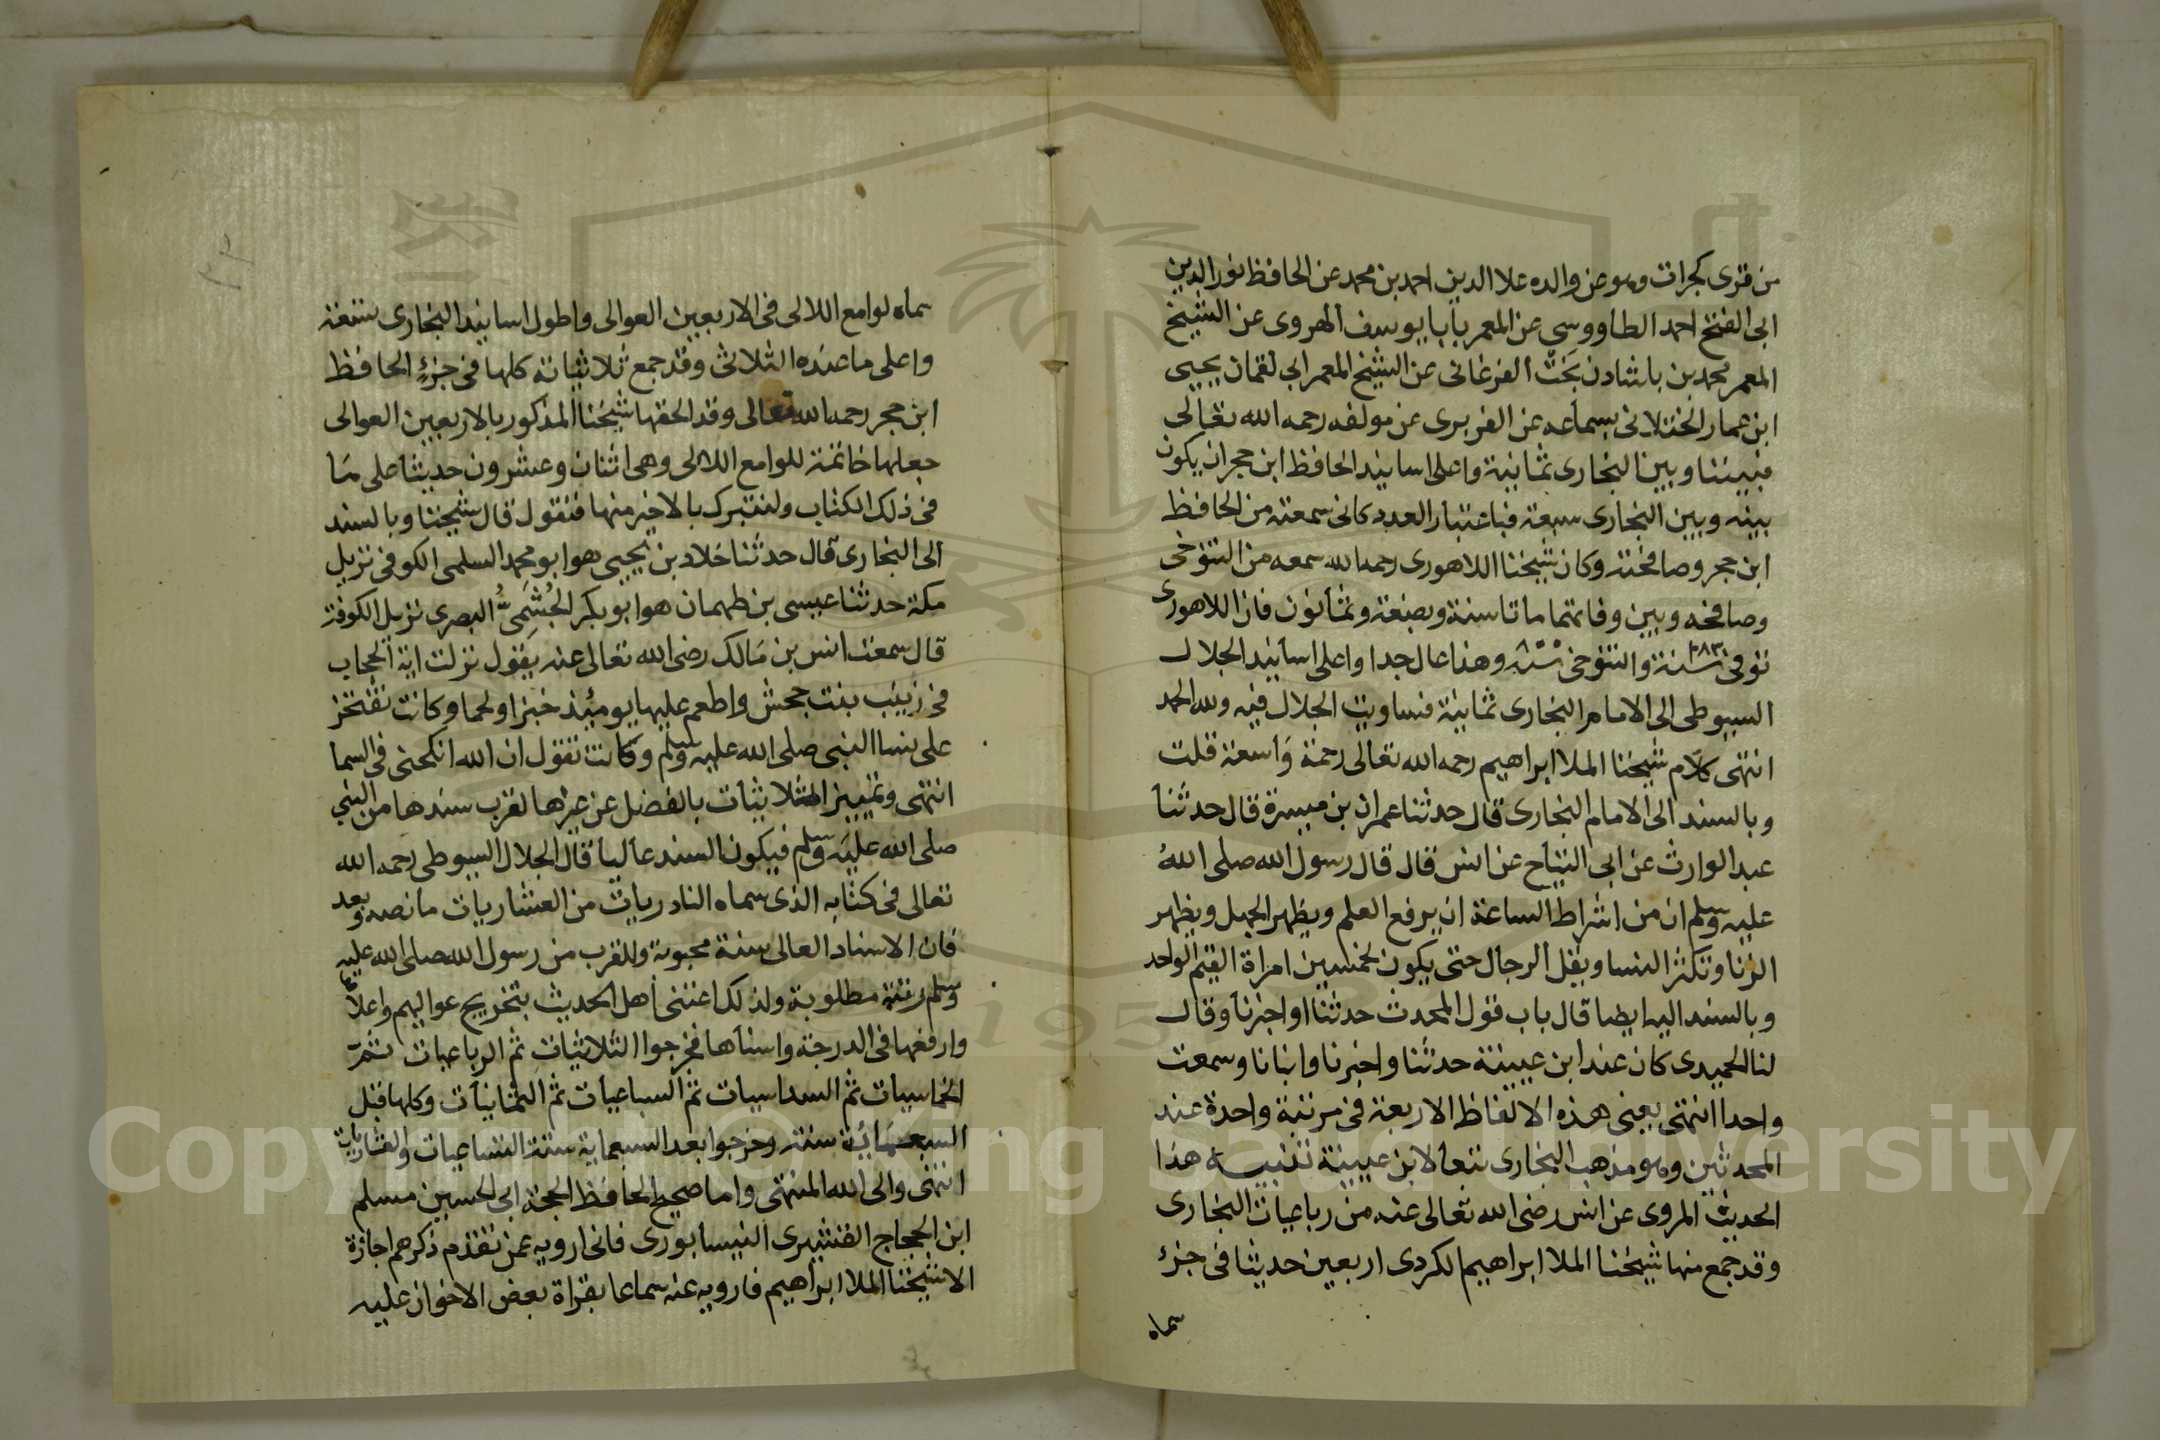 من قرى كجرات وهو عن والده علا الدين احمد بن محمد عن الحافظ نور الدين
ابى الفتح احمد الطاووسى عن المعمر بابا يوسف الهروى عن الشيخ
المعمر محمد بن باشاذن بخت الفرغانى عن الشيخ المعمر ابي لقمان يحيى
ابن عمار الختلانى بسماعه عن الفربرى عن مولفه رحمه الله تعالى
فبيننا وبين البخارى ثمانية واعلى اسانيد الحافظ ابن حجر ان يكون
بينه وبين البخارى سبعة فباعتبار العدد كانى سمعته من الحافظ
ابن حجر وصافحته وكان شيخنا اللاهورى رحمه الله سمعه من التنوخى
وصافحه وبين وفاتهما ماتا سنة وبضعة وثمانون فان اللاهورى
توفى سنة ١٠٨٣ والتنوخى وهذا عال جدا واعلى اسانيد الجلال
السيوطى الى الامام البخارى ثمانية فساويت الجلال فيه ولله الحمد
انتهى كلام شيخنا الملا ابراهيم رحمه الله تعالى رحمة واسعة قلت
وبالسند الى الامام البخارى قال حدثنا عمران بن ميسرة قال حدثنا
عبد الوارث عن ابى التياح عن انس قال قال رسول الله صلى الله
عليه وسلم ان من اشراط الساعة ان يرفع العلم ويظهر الجهل ويظهر
الزنا وتكثر النسا ويقل الرجال حتى يكون لخمسين امراة القيم الواحد
وبالسند اليه ايضا قال باب قول المحدث حدثنا او اخبرنا وقال
لنا الحميدى كان عند ابن عيينة حدثنا واخبرنا وانبانا وسمعت
واحدا انتهى يعنى هذه الالفاظ الاربعة فى مرتبة واحدة عند
المحدثين وهو مذهب البخارى تبعا لابن عيينة تنبيه هذا
الحديث المروى عن انس رضى الله تعالى عنه من رباعيات البخارى
وقد جمع منها شيخنا الملا ابراهيم الكردى اربعين حديثا فى جزء
سماه
٣٣
سماه لوامع اللالى فى الاربعين العوالى واطول اسانيد البخارى تسعة
واعلى ما عنده الثلاثى وقد جمع ثلاثياته كلها فى جزء الحافظ
ابن حجر رحمه الله تعالى وقد الحقها شيخنا المذكور بالاربعين العوالى
جعلها خاتمة للوامع اللالى وهى اثنان وعشرون حديثا على ما
فى ذلك الكتاب ولنتبرك بالاخير منها فنقول قال شيخنا وبالسند
الى البخارى قال حدثنا خلاد بن يحيى هو ابو محمد السلمى الكوفى نزيل
مكة حدثنا عيسى بن طهمان هو ابو بكر الجُشَمِىُّ البصرى نزيل الكوفة
قال سمعت انس بن مالك رضى الله تعالى عنه يقول نزلت اية الحجاب
فى زينب بنت جحش واطعم عليها يومئذ خبزا ولحما وكانت تفتخر
على نسا النبى صلى الله عليه وسلم وكانت تقول ان الله انكحنى فى السما
انتهى وتمييز الثلاثيات بالفضل عن غيرها لقرب سندها من النبي
صلى الله عليه وسلم فيكون السند عاليا قال الجلال السيوطى رحمه الله
تعالى فى كتابه الذى سماه النادريات من العشاريات ما نصه وبعد
فان الاسناد العالى سنة محبوبة وللقرب من رسول الله صلى الله عليه
وسلم رتبة مطلوبة ولذلك اعتنى أهل الحديث بتخريج عواليهم واعلاها
وارفعها فى الدرجة واسناها فخرجوا الثلاثيات ثم الرباعيات ثم
الخماسيات ثم السداسيات ثم السباعيات ثم الثمانيات وكلها قبل
السبعمائة سنة وخرجوا بعد السبعماية سنة التساعيات والعشاريات
انتهى والى الله المنتهى واما صحيح الحافظ الحجة ابى الحسين مسلم
ابن الحجاج القشيرى النيسابورى فانى ارويه عمن تقدم ذكرهم اجازة
الا شيخنا الملا ابراهيم فارويه عنه سماعا بقراة بعض الاخوان عليه
Copyright © King Saud University
1957